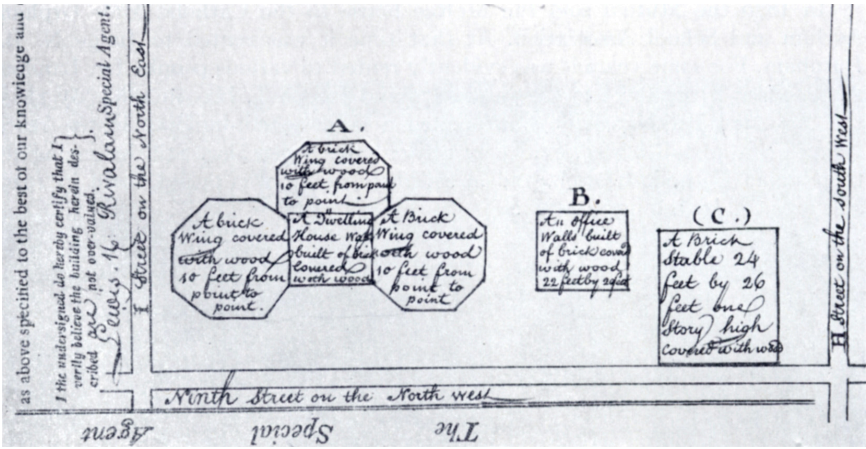 as above specified to the best of our knowledge and
I the undersigned do hereby certify that I
verily believe the building herein des-
cribed are not over-valued.
Lewis Rivalain Special Agent.
I Street on the North East
A.
A brick
Wing covered
with wood
10 feet from point
to point
A brick
Wing covered
with wood
10 feet from
point to
point.
A Dwelling
House Walls
built of brick
covered
with wood
A Brick
Wing covered
with wood
10 feet from
point to
point
B.
An office
Walls built
of brick covd
with wood
22 feet by 20 feet
(C.)
A Brick
Stable 24
feet by 26
feet one
Story high
covered with wood
H Street on the South West
Ninth Street on the North west
The Special Agent